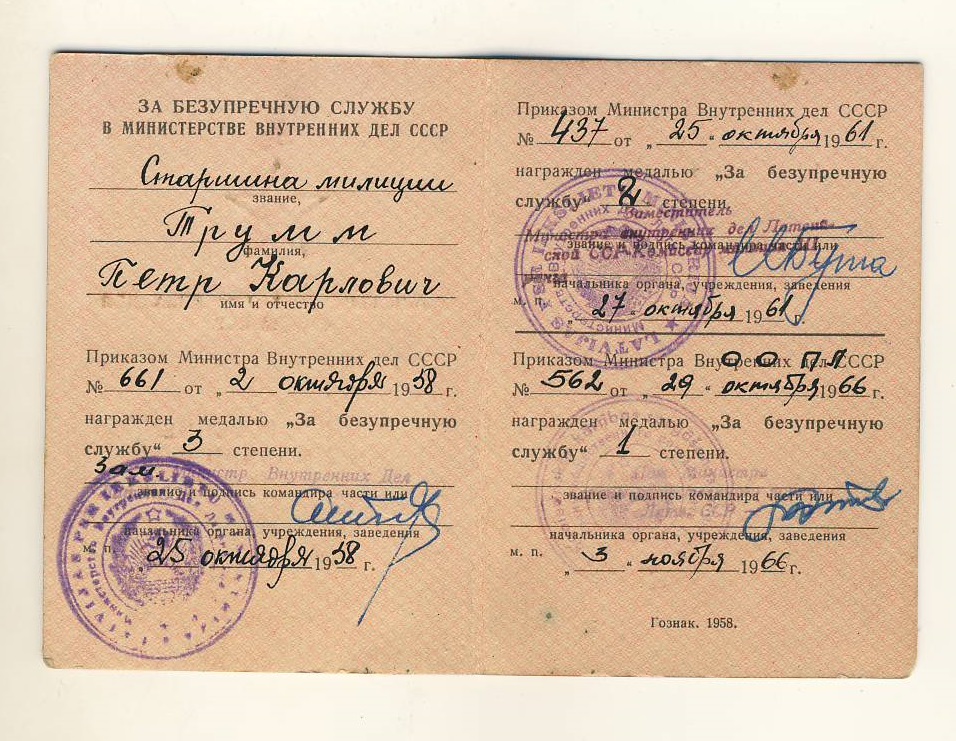 ЗА БЕЗУПРЕЧНУЮ СЛУЖБУ
В МИНИСТЕРСТВЕ ВНУТРЕННИХ ДЕЛ СССР
Старшина милиции
звание,
Трумм
фамилия,
Петр Карлович
имя и отчество
Приказом Министра Внутренних дел СССР
№ 661 от „2 октября 1958 г.
награжден медалью „За безупречную
службу“ 3 степени.
Зам. Министр Внутренних Дел
звание и подпись командира части или
начальника органа, учреждения, заведения
м. п. „25 октября 1958 г.
Приказом Министра Внутренних дел СССР
№ 437 от „25“ октября 1961 г.
награжден медалью „За безупречную
службу“ 2 степени.
Заместитель
Министра внутренних дел Латвий-
ской ССР-Комиссар
звание и подпись командира части или
начальника органа, учреждения, заведения
м. п. „27“ октября 1961 г.
LATVIJAS PSR
Приказом Министра Внутренних дел СССР
ООПЛ
№ 562 от „29“ октября 1966 г.
награжден медалью „За безупречную
службу“ 1 степени.
Министра
звание и подпись командира части или
ССР
начальника органа, учреждения, заведения
м. п. „3“ ноября 1966 г.
Гознак. 1958.